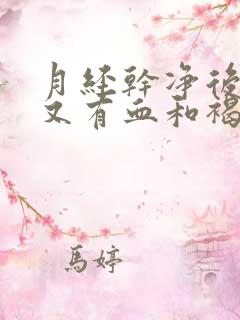 月经幹净後
又有血和褐
馬婷